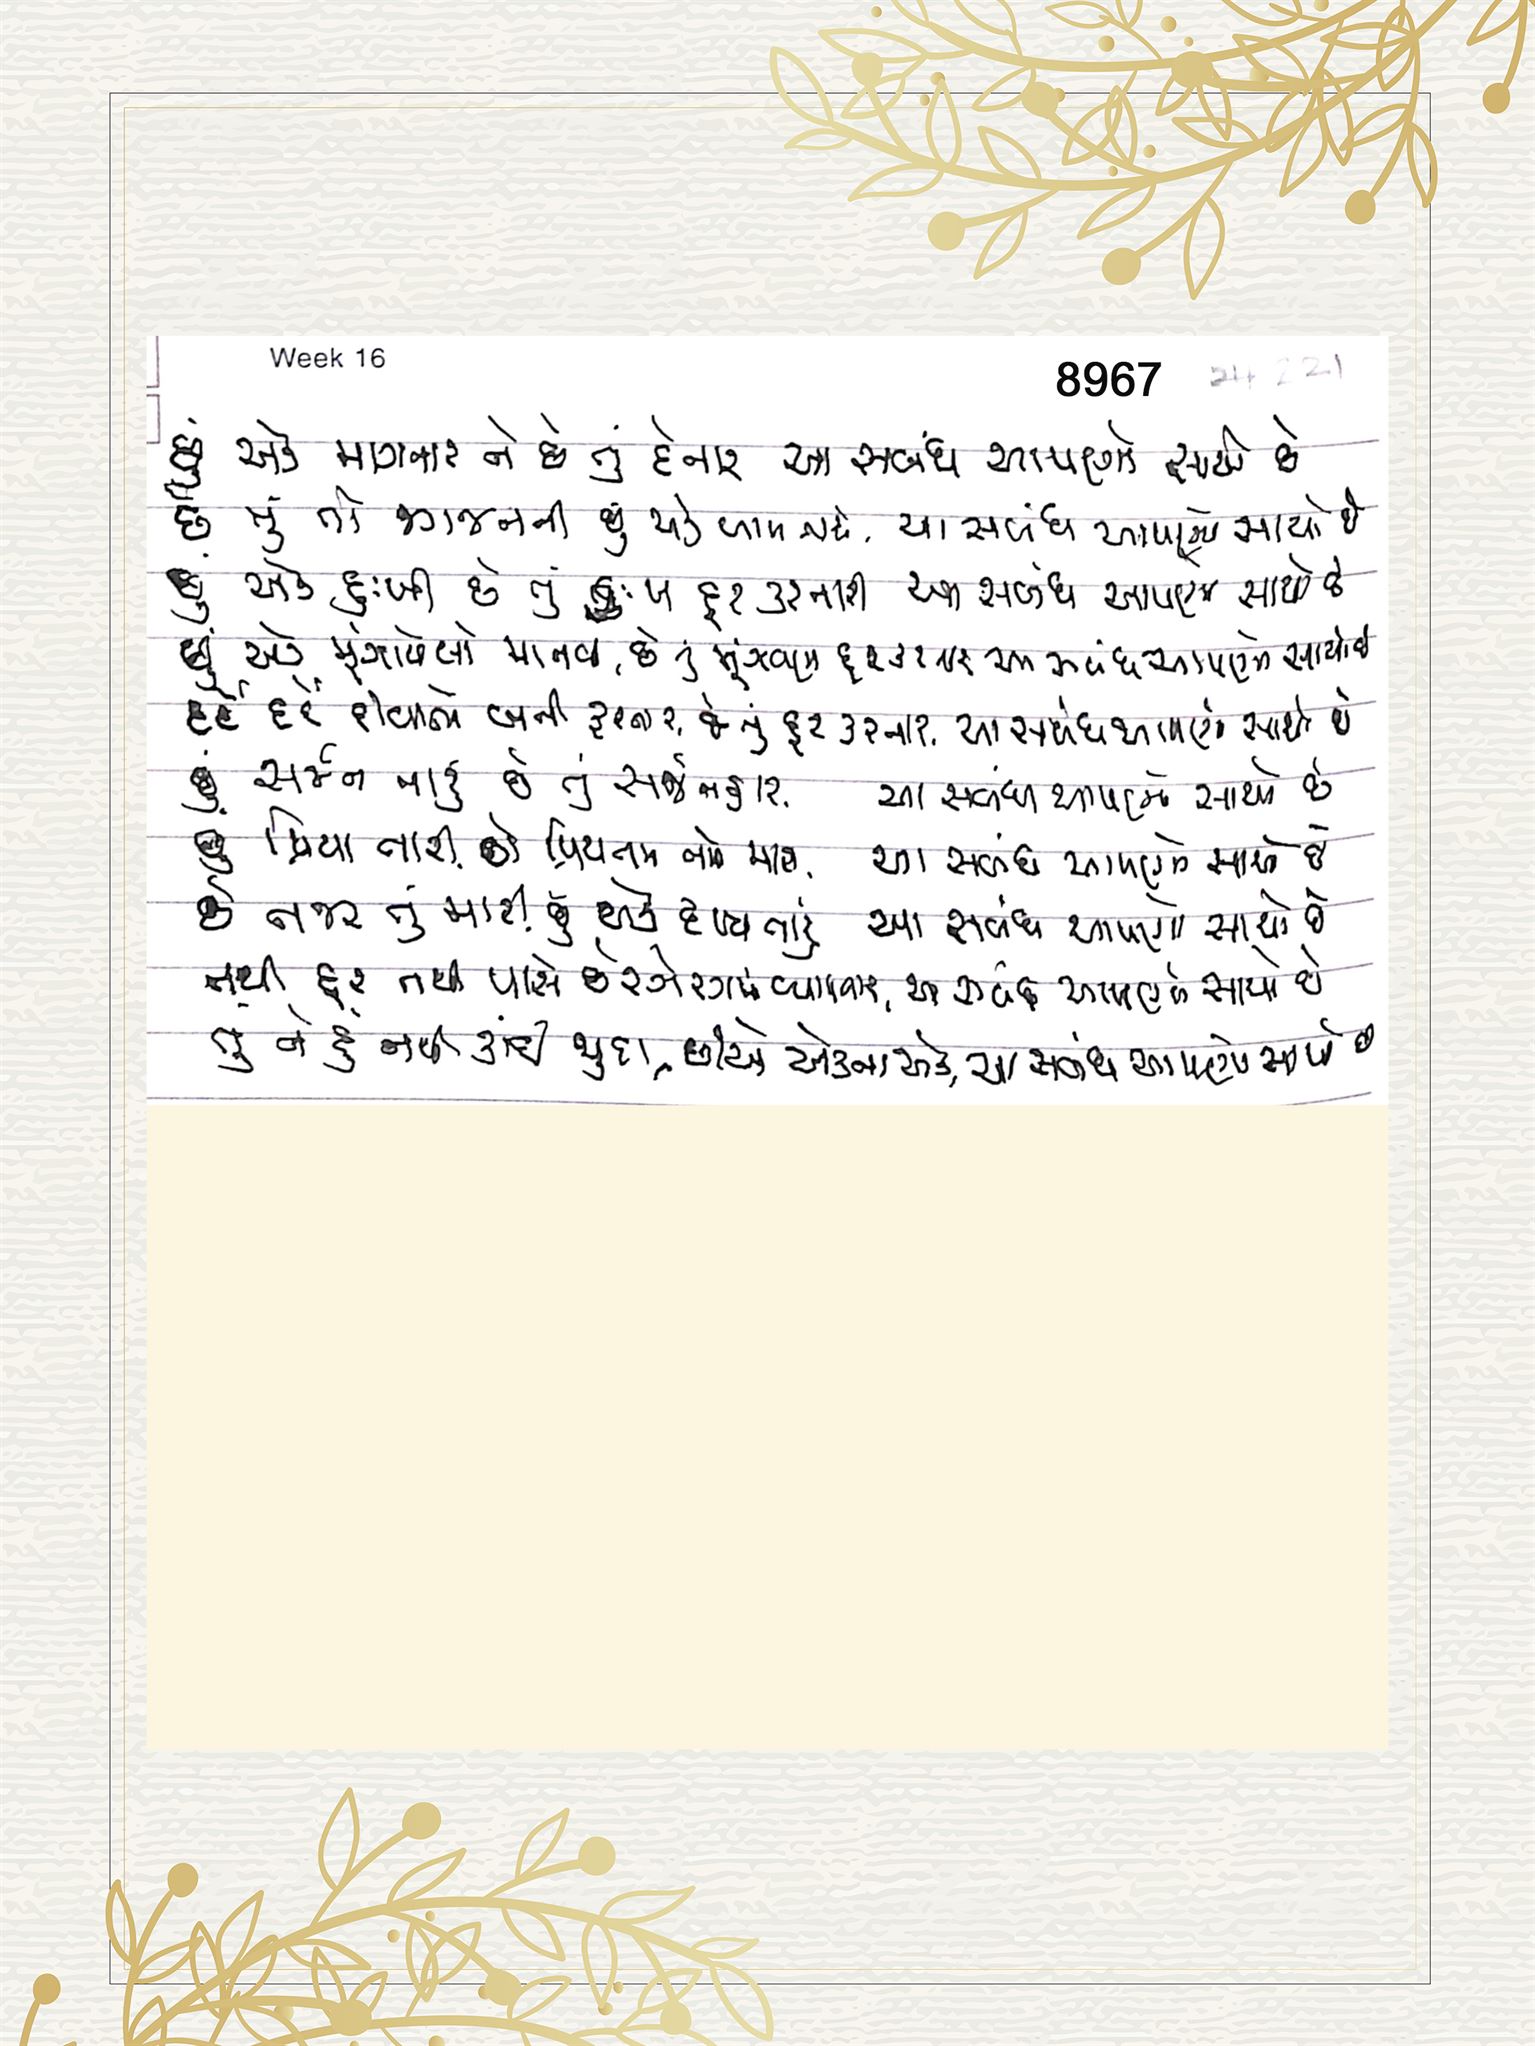 Week 16
8967
છું એક માગનાર ને છે તું દેનાર આ સબંધ આપણો સાચો છે
છે તું તો જગજનની છું એક બાળ આ સબંધ આપણો સાચો છે
છું એક દુઃખી છે તું દુઃખ દૂર કરનારી આ સબંધ આપણો સાચો છે
છું એક મૂંઝાયેલો માનવ, છે તું મૂંઝવણ દૂર કરનાર આ સબંધ આપણો સાચો છે
દર્દે દર્દે દીવાનો બની ફરનાર, છે તું દૂર કરનાર. આ સબંધ આપણો સાચો છે
છું સર્જન તારું છે તું સર્જનહાર. આ સબંધ આપણો સાચો છે
છું પ્રિયા તારી. છો પ્રિયતમ તમે મારા. આ સબંધ આપણો સાચો છે
છે નજર તું મારી. છું એક દૃશ્ય તારું આ સબંધ આપણો સાચો છે
નથી દૂર નથી પાસે છે રગેરગમાં વ્યાપનાર, આ સબંધ આપણો સાચો છે
તું ને હું નથી કાંઈ જુદા, છીએ એકના એક, આ સબંધ આપણો સાચો છે